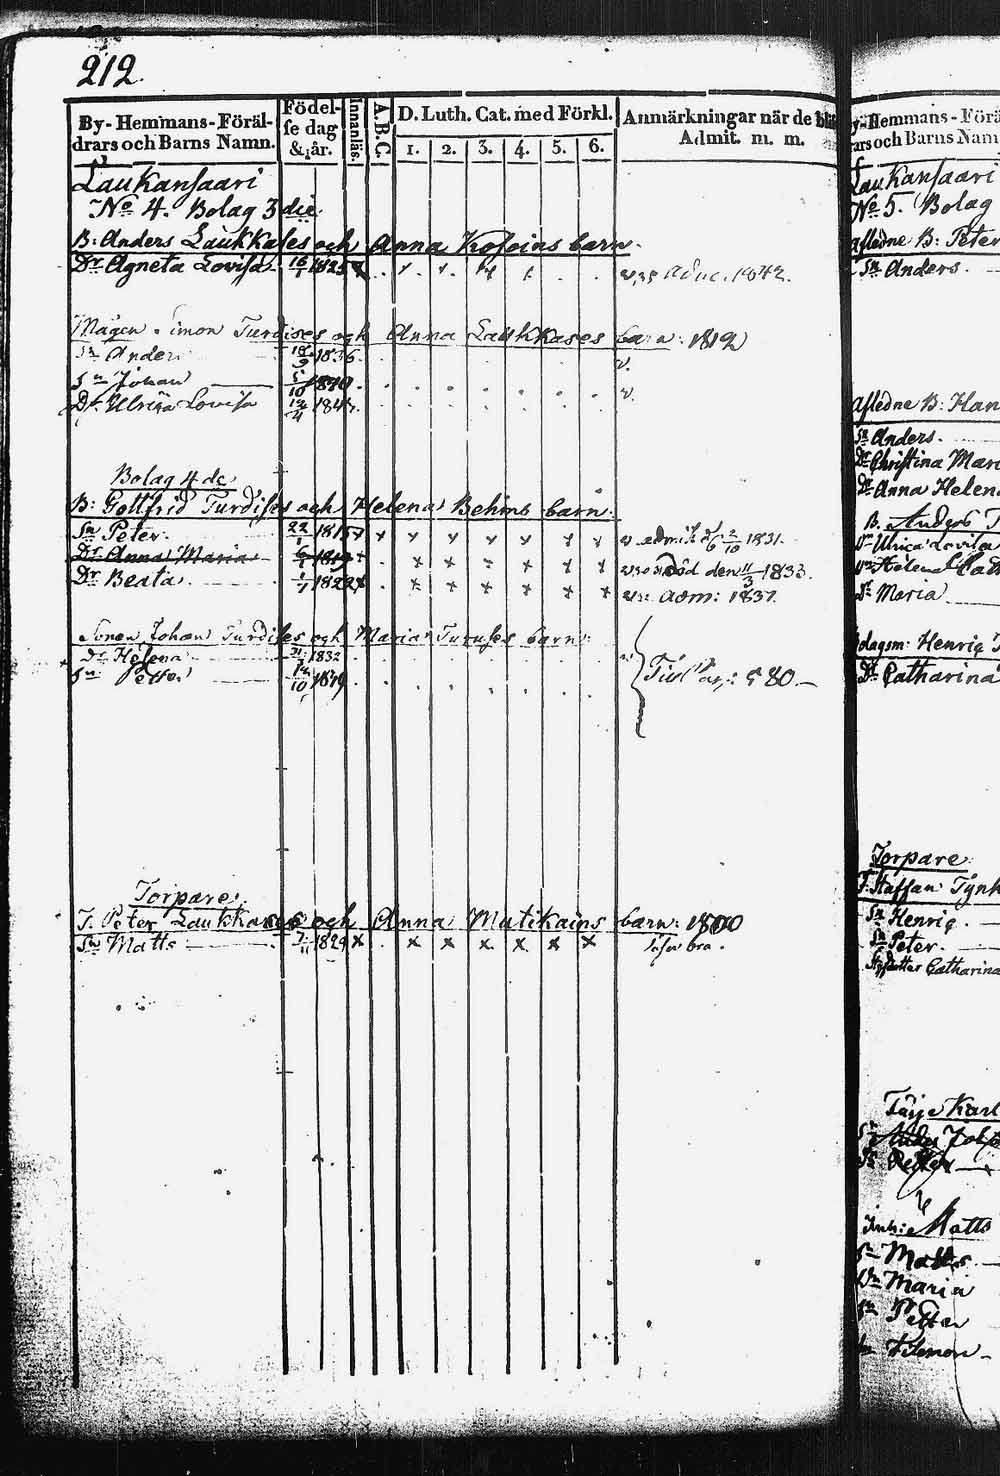 212.
By- Hemmans- Föräl-
drars och Barns Namn.
Födel-
se dag
& år.
Innanläs.
A.B.C.
D. Luth. Cat. med Förkl.
1. 2. 3. 4. 5. 6.
Anmärkningar när de
Admit. m. m.
Laukansaari
No 4. Bolag 3 die
B: Anders Laukkases och Anna barn.
Dr Agneta Lovisa 16/1 1825
Mågen Simon Turdises och Anna Laukkases barn: 1812
Sn Anders 18/9 1836.
Sn Johan 5/10 1840
Dr Ulrica Lovisa
Bolag 4 de
B: Gottfrid Turdises och Helena Behms barn
Sn Peter 22/1 1815 1831.
Dr Anna Maria 1819 död den 11/3 1833.
Dr Beata 1/1 1822 adm: 1837.
Sonen Johan Turdises och Maria barn:
Dr Helena 1832
Sn Petter
580
Torpare.
T. Peter Laukkanes och Anna Matikains barn: 1800
Sn Matts 1829 bra.
By- Hemmans- Förä
rars och Barns Nam
Laukansaari
No 5. Bolag
afledne B: Peter
Sn Anders.
afledne B: Han
Sn Anders.
Dr Christina Mari
Dr Anna Helena
B. Anders T
Dr Ulrica Lovisa
Dr Helena
Dr Maria
Bolagsm: Henric T
Dr Catharina
Torpare.
T. Staffan Tynk
Sn Henric
Sn Peter.
Catharina
Karl
Inh: Matts
Sn Matts
Dr Maria
Sn Petter